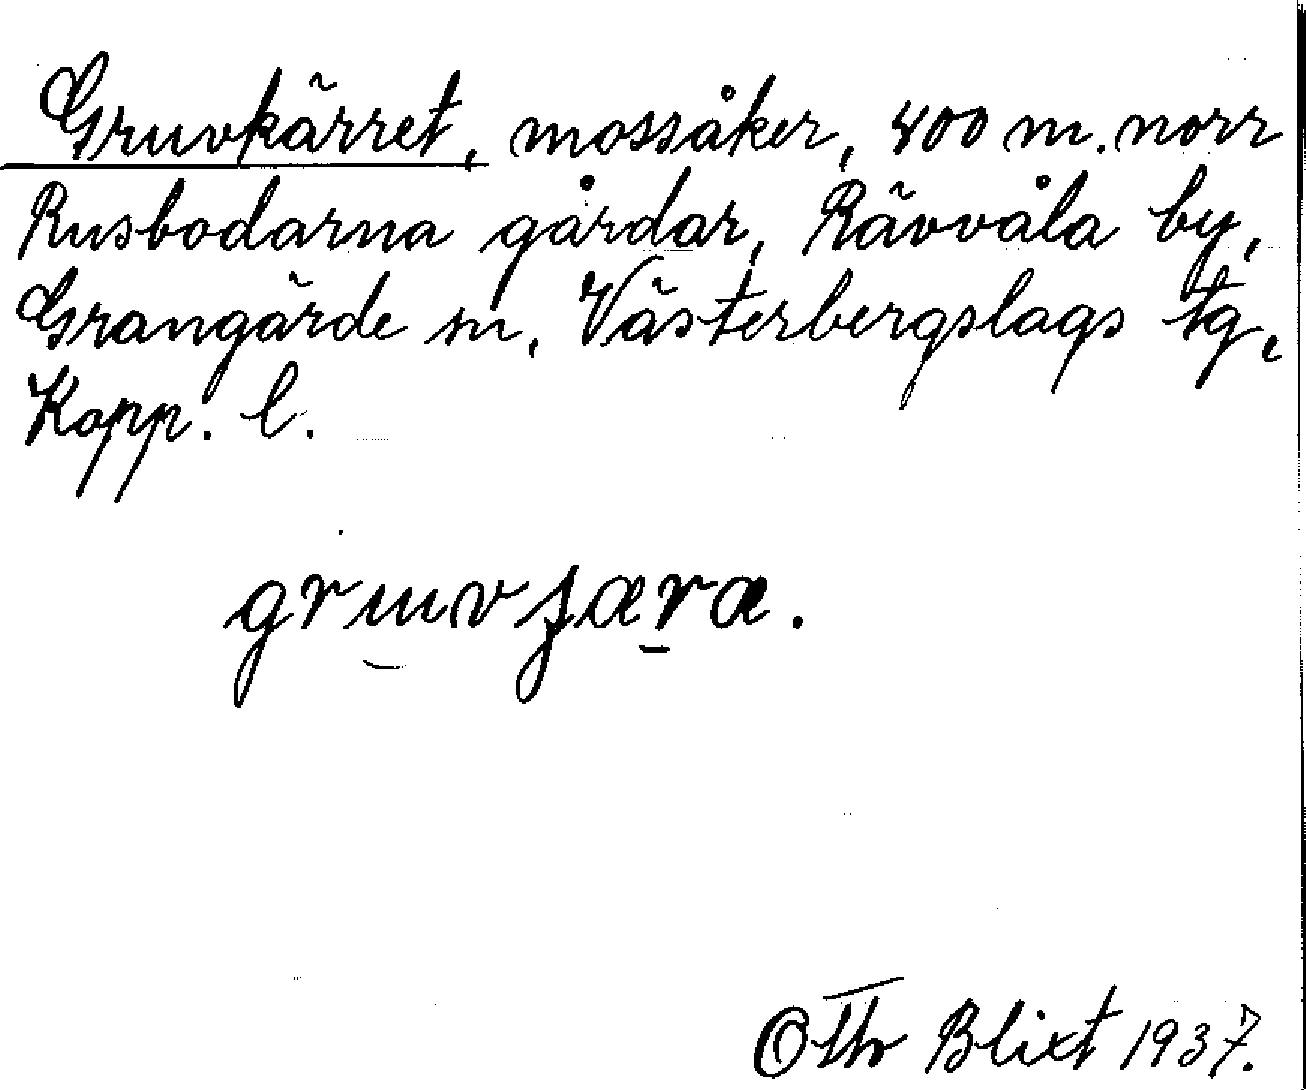 Gruvkärret, mossåker, 400 m. norr
Rusbodarna gårdar, Rävvåla by,
Grangärde sn, Västerbergslags tg,
Kopp. l.
gruvjæra.
Otto Blixt 1937.